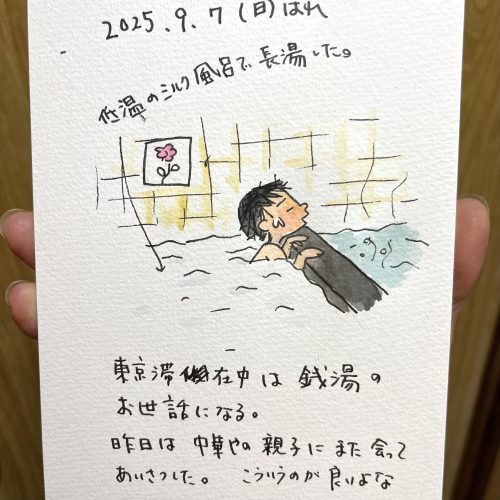 2025.9.7(日)はれ
低温のミルク風呂で長湯した。
東京滞在中は銭湯の
お世話になる。
昨日は中華やの親子にまた会って
あいさつした。 こういうのが良いよな